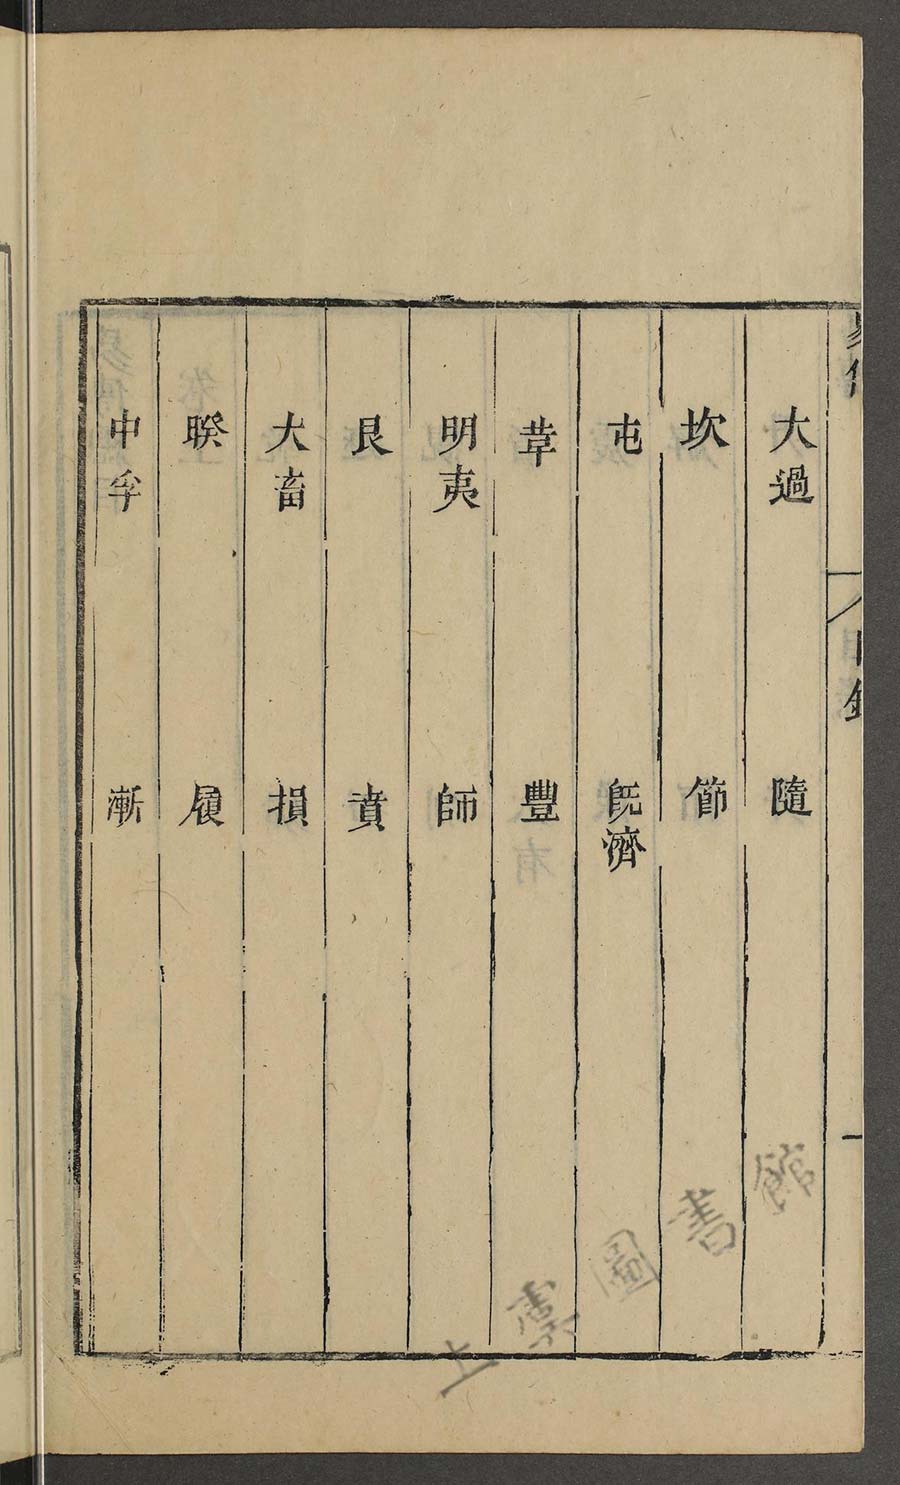 大過　隨
坎　節
屯　旣濟
革　豐
明夷　師
艮　賁
大畜　損
睽　履
中孚　漸
上虞圖書館